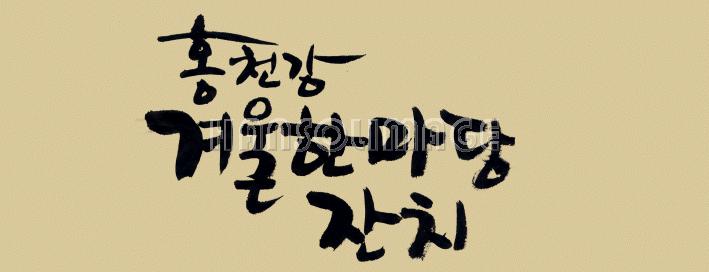 홍천강
겨울한마당
잔치